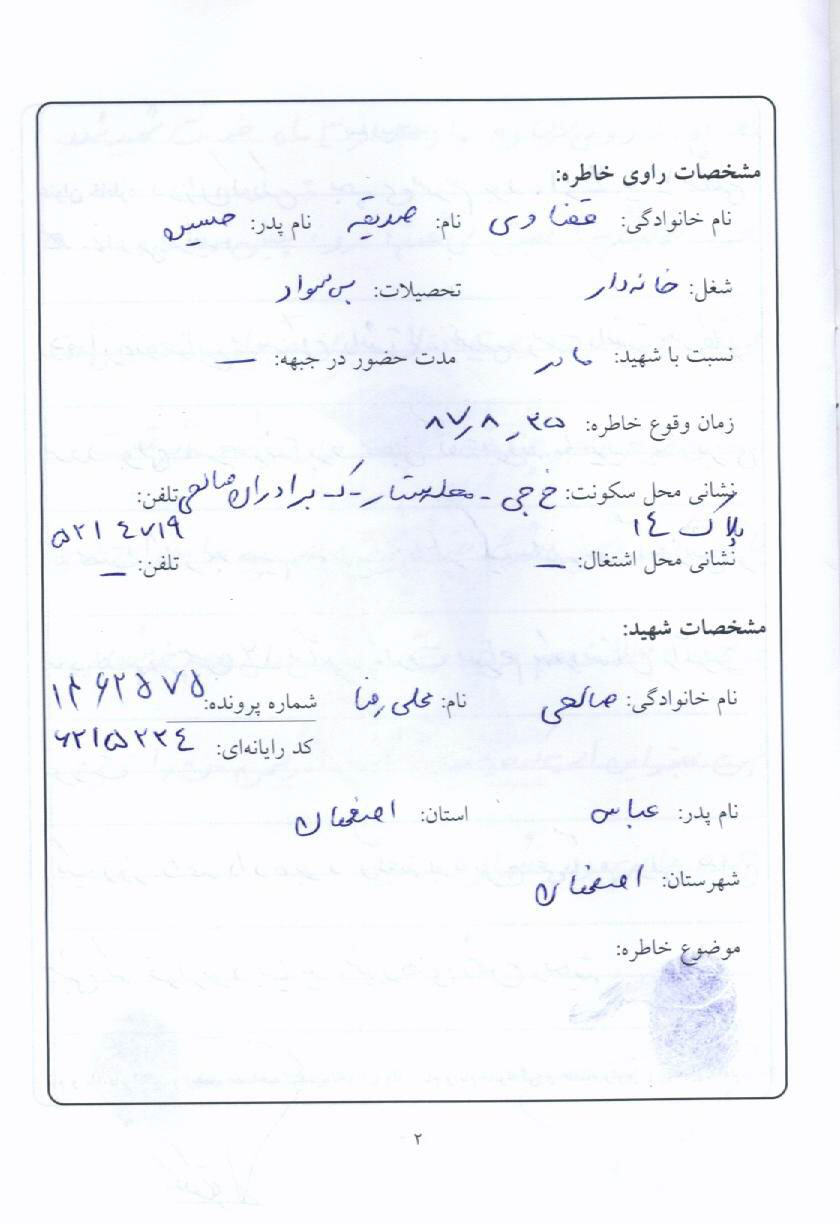 مشخصات راوی خاطره:
نام خانوادگی: قضاوی نام: صدیقه نام پدر: حسین
شغل: خانه‌دار تحصیلات: بی‌سواد
نسبت با شهید: مادر مدت حضور در جبهه: —
زمان وقوع خاطره: ۸۷٫۸٫۲۵
نشانی محل سکونت: خ حجی - - ک برادران صالحی تلفن:
پلاک ۱٤ ۵۲۱٤۷۱۹
نشانی محل اشتغال: — تلفن: —
مشخصات شهید:
نام خانوادگی: صالحی نام: علی رضا شماره پرونده: ۱۳۶۲۵۷۵
کد رایانه‌ای: ۶۲۱۵۲۲٤
نام پدر: عباس استان: اصفهان
شهرستان: اصفهان
موضوع خاطره:
۲